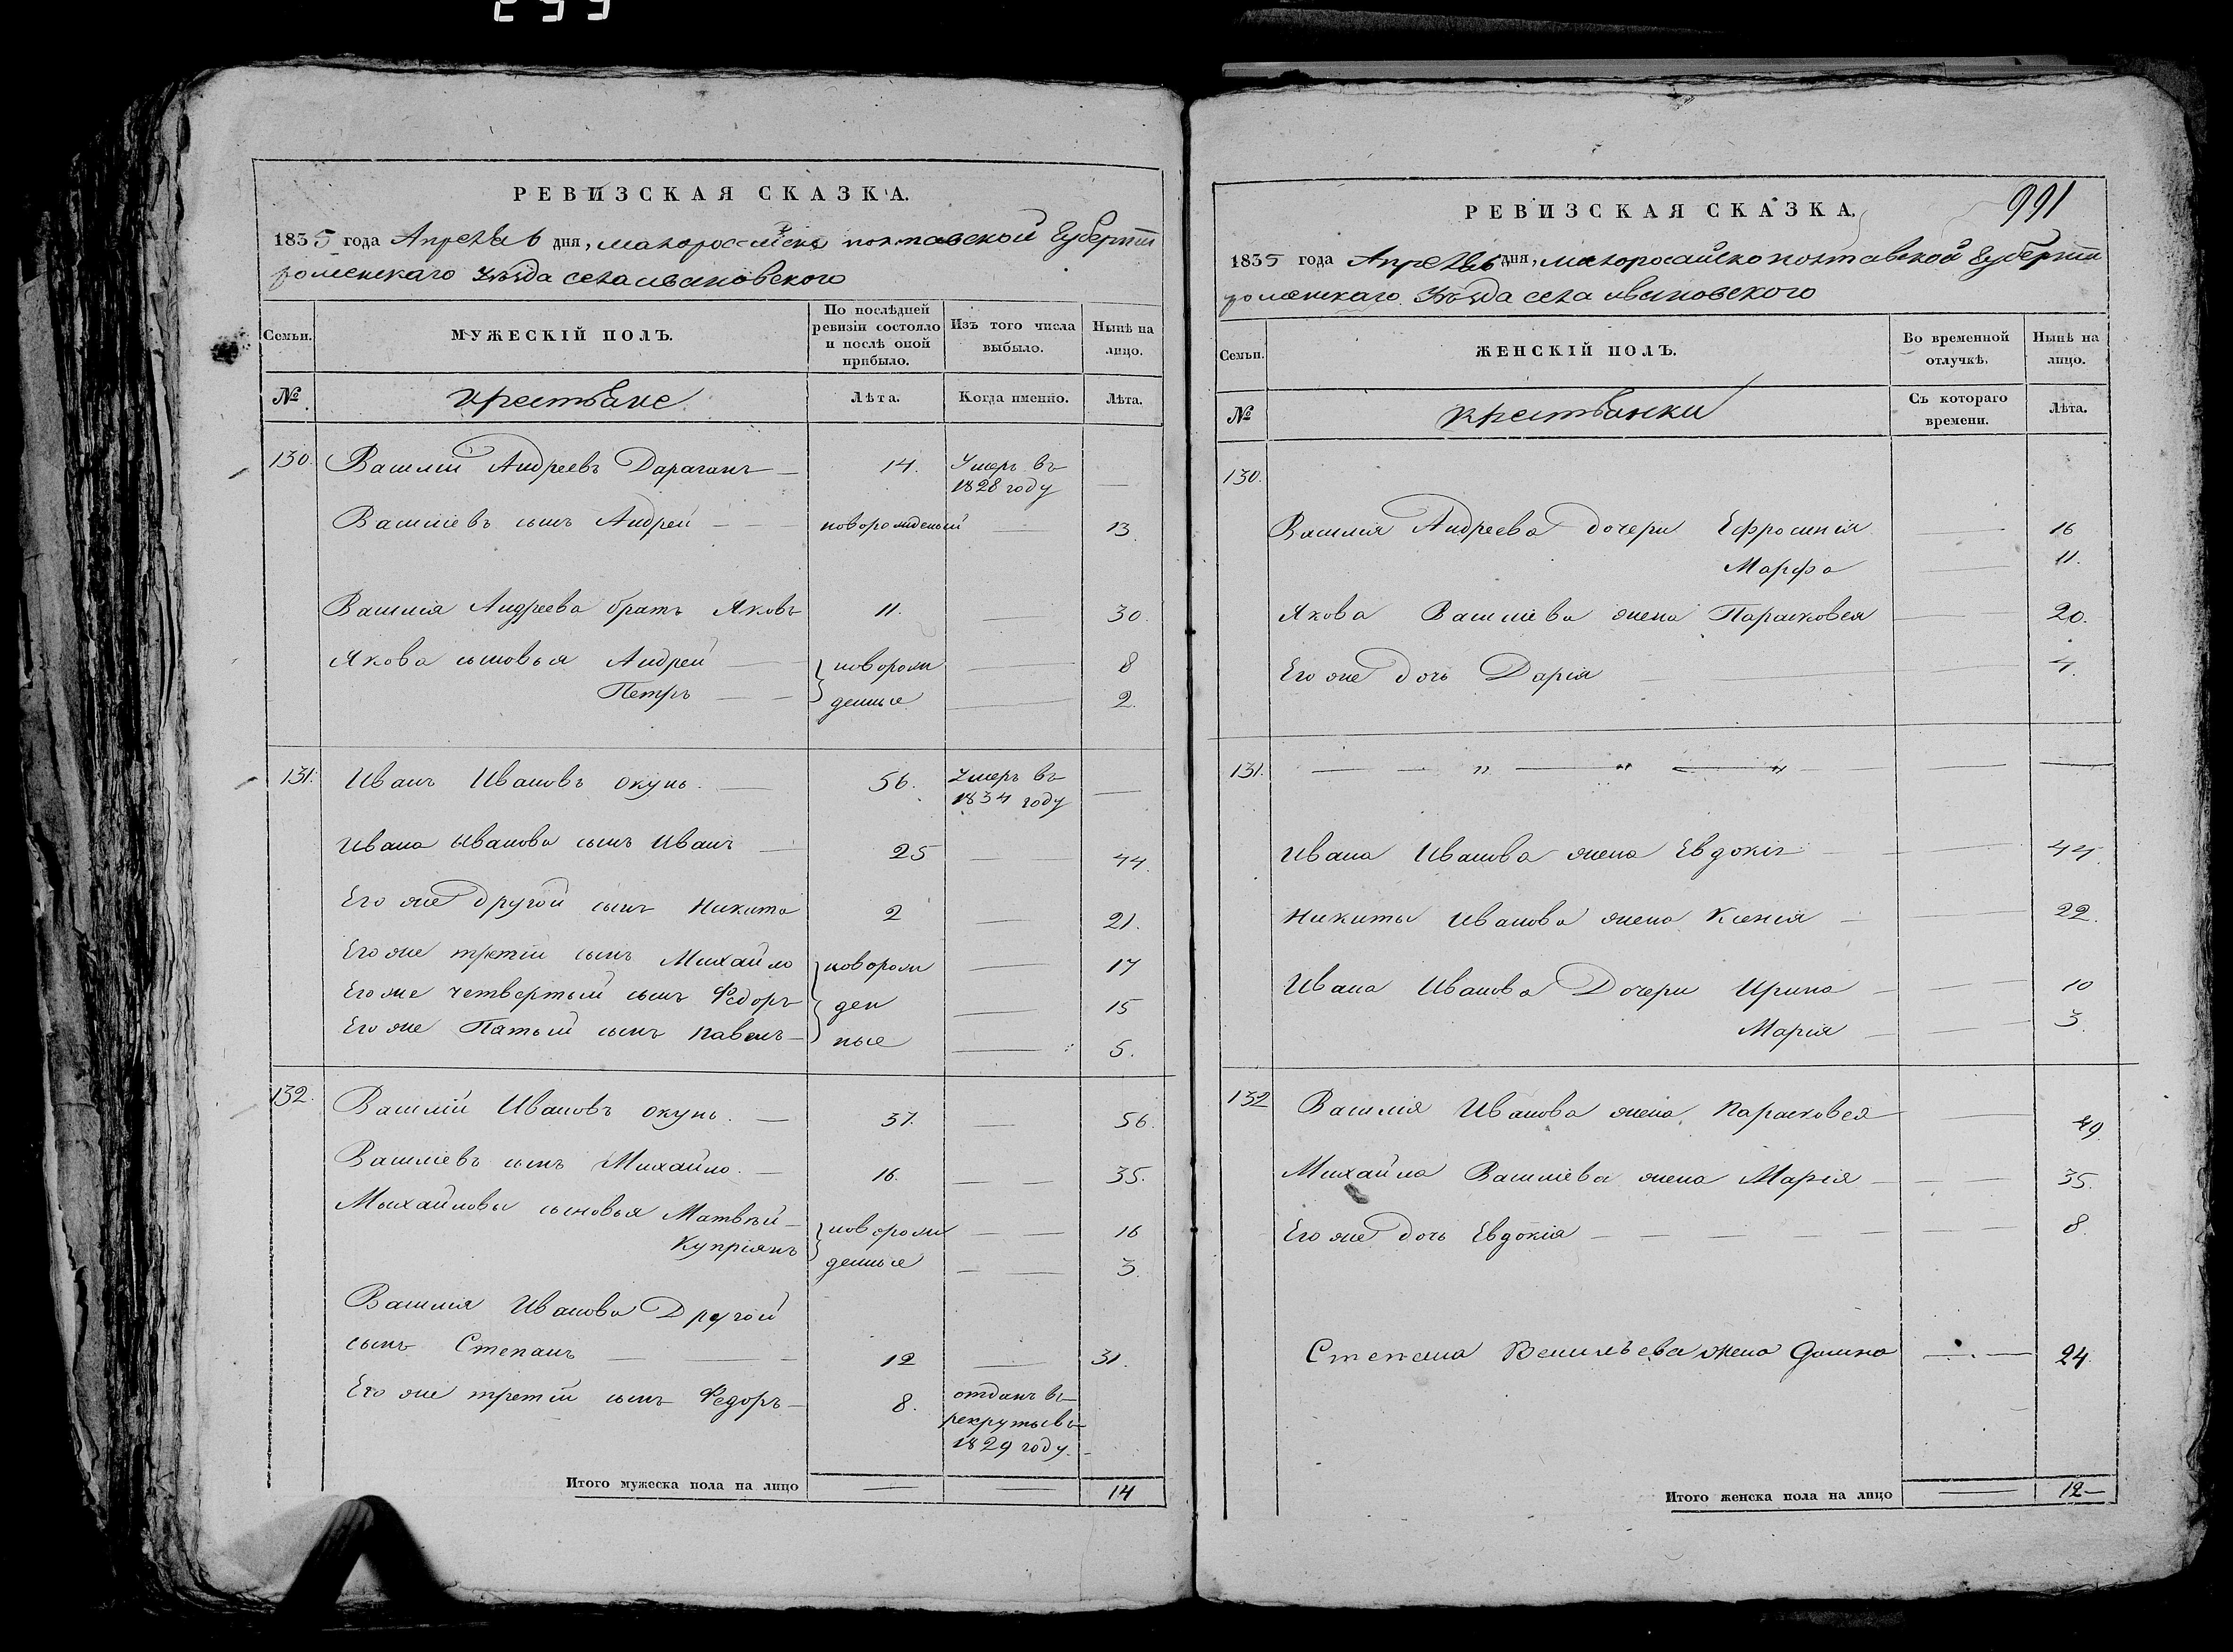 299
РЕВИЗСКАЯ СКАЗКА.
1835 года Апреля 6 дня, малороссийско полтавской Губернiи
роменскаго Уѣзда села ивановского
Семьи.
МУЖЕСКIЙ ПОЛЪ.
По послѣдней ревизiи состояло и послѣ оной прибыло.
Изъ того числа выбыло.
Нынѣ на лицо.
№
крестьяне
Лѣта.
Когда именно.
Лѣта.
130. Василiй Андреевъ Дараганъ — 14. Умеръ въ 1828 году —
Василiевъ сынъ Андрей — — новорожденый — 13.
Василiя Андреева братъ Яковъ 11. — 30.
Якова сыновья Андрей — новорож — 8
Петръ — — денные — 2.
131. Иванъ Ивановъ окунь. — 56. Умеръ въ 1834 году —
Ивана Иванова сынъ Иванъ — 25 — 44.
Его же другой сынъ Никита 2 — 21.
Его же третiй сынъ Михайло новорож — 17
Его же четвертый сынъ Федоръ ден — 15
Его же Пятый сынъ павелъ — ные — 5.
132. Василiй Ивановъ окунь. — 37. — 56.
Василiевъ сынъ Михайло. — 16. — — 35.
Михайловы сыновья Матвѣй — новорож — — 16
Купрiянъ денные — — 3.
Василiя Иванова Другой
сынъ Степанъ — — 12 — 31.
Его же третiй сынъ Федоръ — 8. отданъ въ рекруты въ 1829 году. —
Итого мужеска пола на лицо — — 14
991
РЕВИЗСКАЯ СКАЗКА.
1835 года Апреля 6 дня, малоросайско полтавской Губернiи
роменскаго Уѣзда села ивановского
Семьи.
ЖЕНСКIЙ ПОЛЪ.
Во временной отлучкѣ.
Нынѣ на лицо.
№
крестьянки
Съ котораго времени.
Лѣта.
130.
Василия Андреева дочери Ефросинiя — 16
Марфа — 11.
Якова Василiева жена Парасковея — 20.
Его же дочь Дарiя — — 4.
131. — — " — " — " — — —
Ивана Иванова жена Евдокiя — — 44.
Никиты Иванова жена Ксенiя — — 22.
Ивана Иванова Дочери Ирина — — — 10
Марiя — — — 3.
132 Василiя Иванова жена Парасковея — 49.
Михайла Василiева жена Марiя — — — 35.
Его же дочь Евдокiя — — — — — — — 8.
Степана Васильева жена Домна — — 24.
Итого женска пола на лицо — 12 —